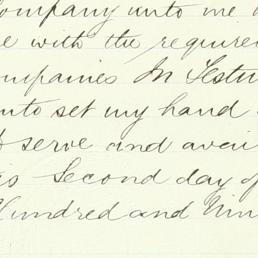 Company unto me
e with the require
ompanies In Testi
unto set my hand
serve and avai
is Second day of
Hundred and Nin